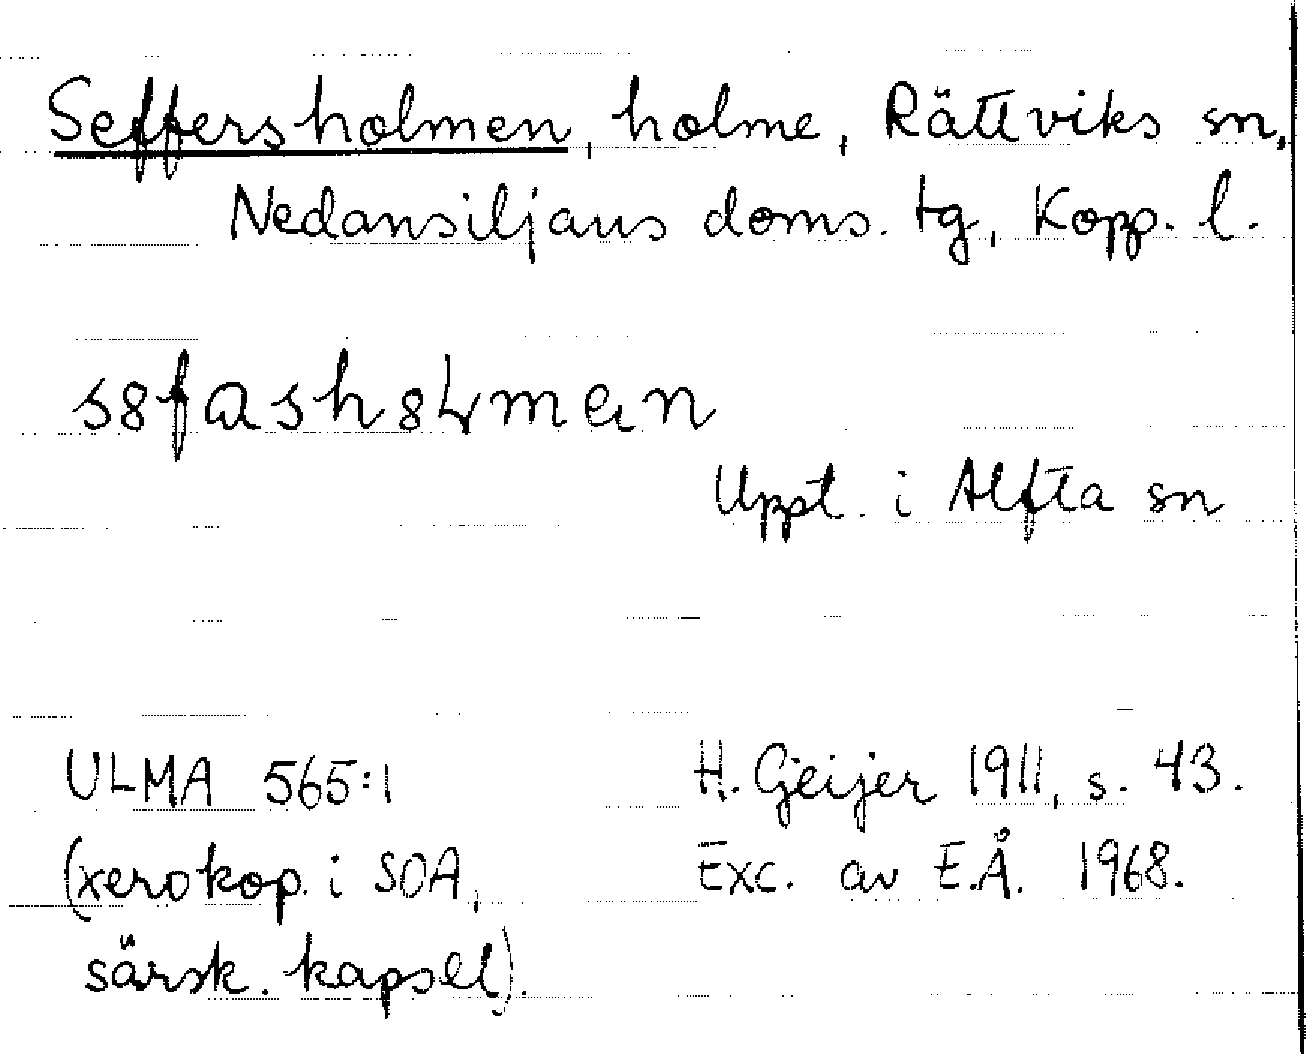 Seffersholmen, holme, Rättviks sn,
Nedansiljans doms. tg, Kopp. l.
Uppt. i Alfta sn
ULMA 565:1
H. Geijer 1911, s. 43.
(xerokop. i SOA,
Exc. av E.Å. 1968.
särsk. kapsel).